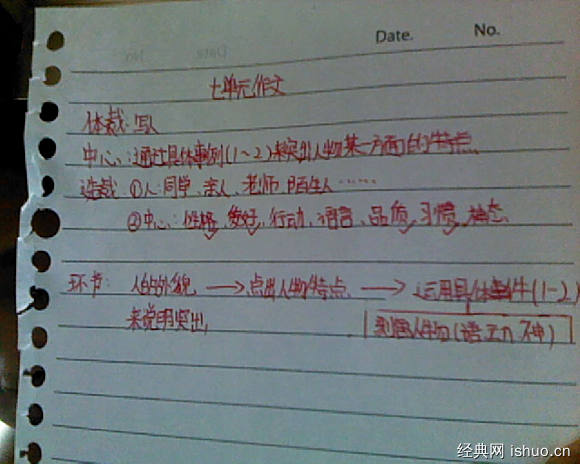 Date. No.
七单元作文
体裁:写人
中心:通过具体事例(1~2)来突出人物某一方面的特点.
选裁 ①人:同学、亲人、老师、陌生人……
②中心:性格、爱好、行动、语言、品质、习惯、神态.
环节: 人的外貌 → 点出人物特点 → 运用具体事件(1-2)
来说明突出,
刻画人物(语 动 神)
经典网 ishuo.cn